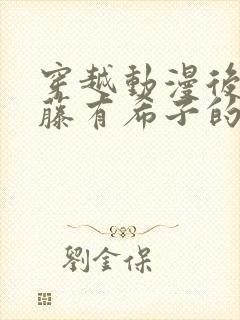 穿越動漫後
藤有希子的
劉金保